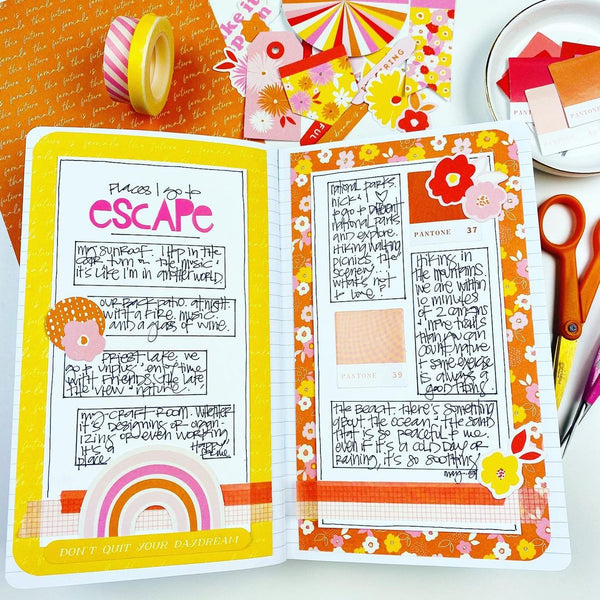 female is the future
make it
happen
places I go to
escape
my sunroof. I hop in the
car, turn on the music &
it's like I'm in another world.
our back patio. at night
with a fire, music
and a glass of wine.
Priest Lake. we
go to unplug, enjoy time
with friends, the lake
the view & nature.
my craft room. whether
it's designing or organ-
izing or even working
it's a happy
place
DON'T QUIT YOUR DAYDREAM
national parks.
nick & I ♡
to go to different
national parks
and explore.
hiking, walking
picnics, the
scenery...
what's not
to love?
PANTONE 37
PANTONE 39
Hiking in
the mountains.
we are within
10 minutes
of 2 canyons
& more trails
than you can
count. nature
& some exercise
is always a
good thing.
the beach. there's something
about the ocean & the sand
that is so peaceful to me.
even if it's a cold day or
raining, it's so soothing!
PANTONE
PANTONE